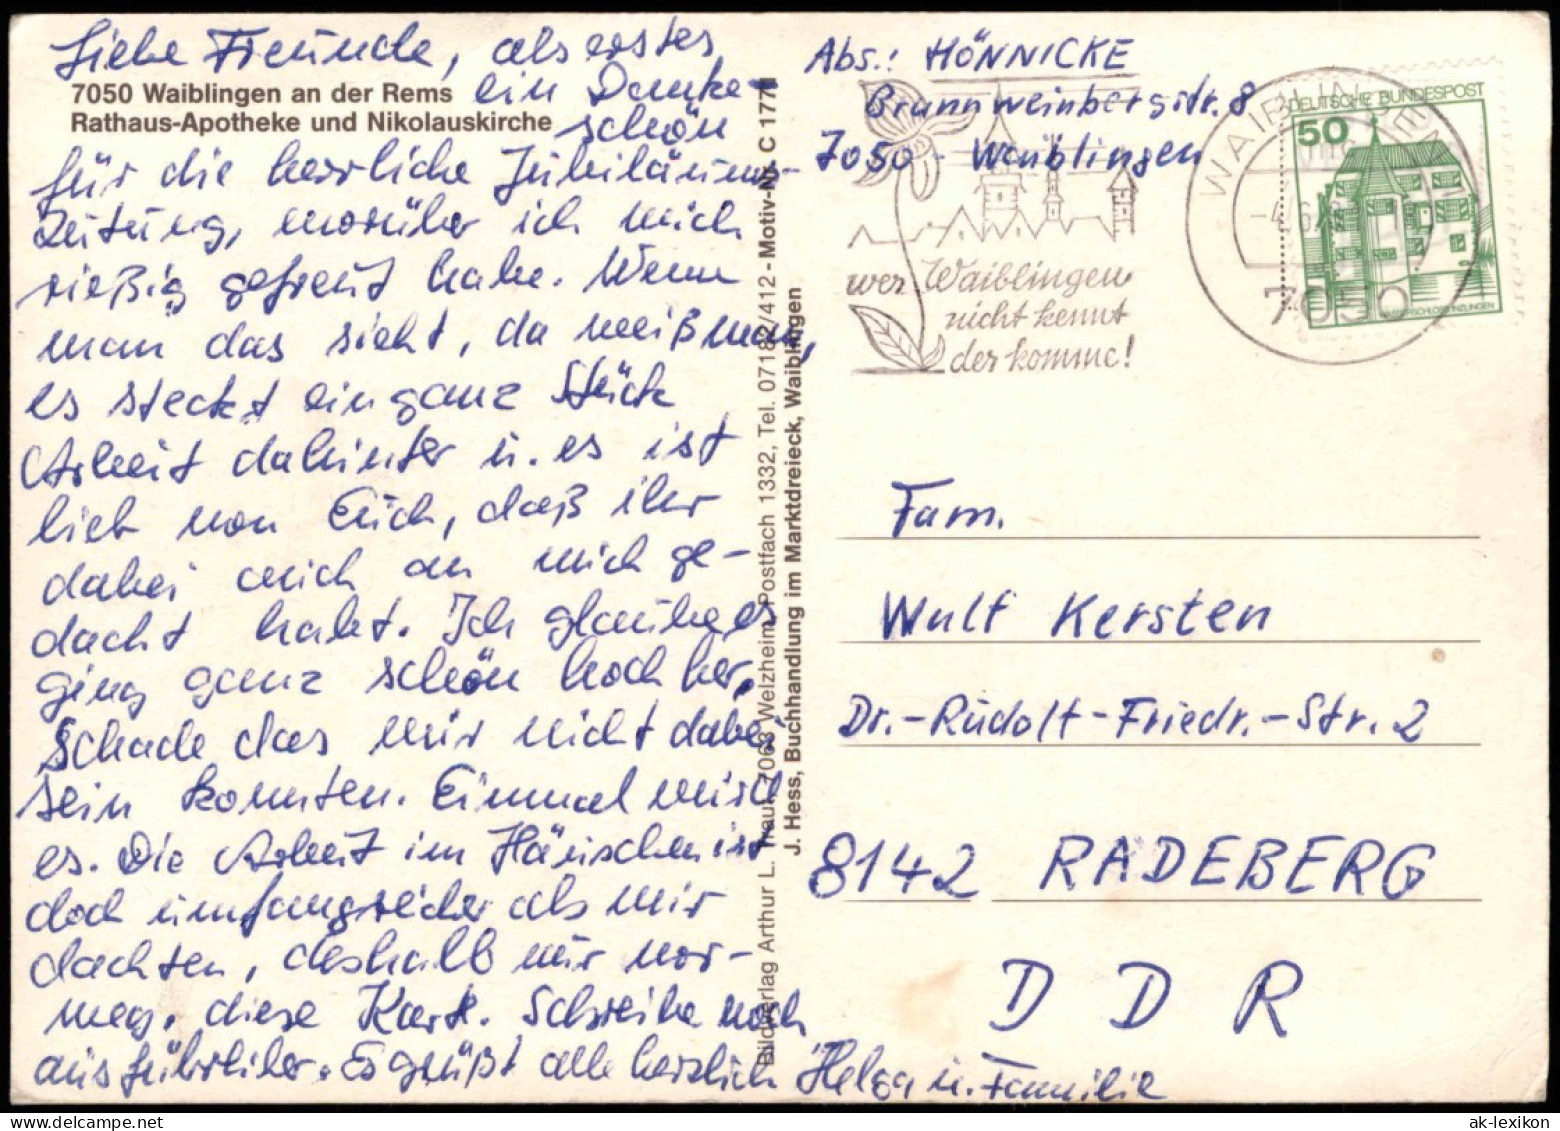 Liebe Freunde, als erstes
7050 Waiblingen an der Rems
Rathaus-Apotheke und Nikolauskirche
ein Danke-
schön
für die herrliche Jubiläums-
zeitung, worüber ich mich
rießig gefreut habe. Wenn
man das sieht, da weiß man,
es steckt ein ganz Stück
Arbeit dahinter u. es ist
lieb von Euch, daß ihr
dabei auch an mich ge-
dacht habt. Ich glaube es
ging ganz schön hoch her,
Schade das wir nicht dabei
sein konnten. Einmal wird
es. Die Arbeit im Häuschen ist
doch umfangreicher als wir
dachten, deshalb nur vor-
weg, diese Karte. Schreibe noch
ausführlicher. Es grüßt alle herzlich Helga u. Familie
Bildverlag Arthur L. Traut, 7063 Welzheim, Postfach 1332, Tel. 07182/412 - Motiv-Nr. C 1771
J. Hess, Buchhandlung im Marktdreieck, Waiblingen
Abs.: HÖNNICKE
Brannweinbergstr. 8
7050 - Waiblingen
wer Waiblingen
nicht kennt
der komme!
WAIBLINGEN
7050
DEUTSCHE BUNDESPOST
50
WASSERSCHLOSS INZLINGEN
Fam.
Wulf Kersten
Dr.-Rudolf-Friedr.-Str. 2
8142 RADEBERG
D D R
ak-lexikon.de